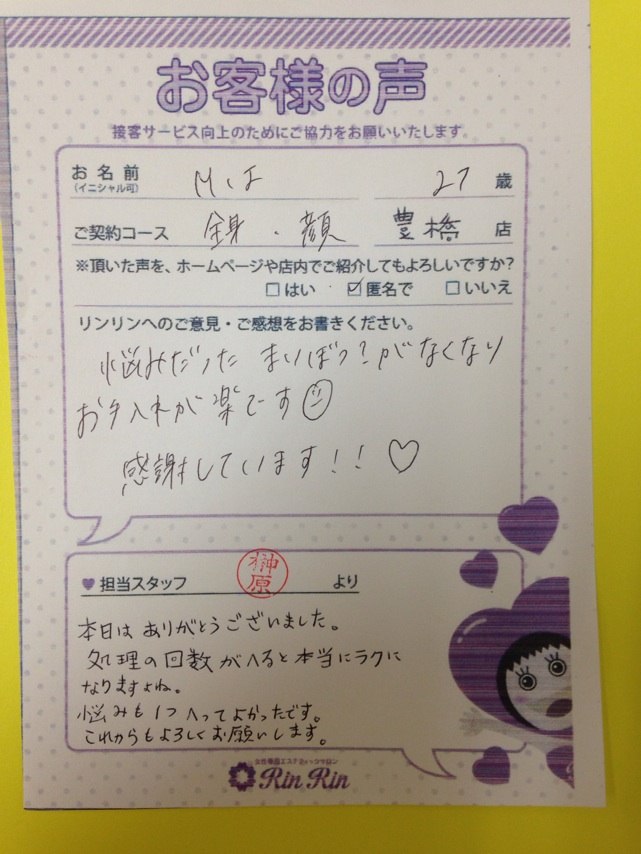 お客様の声
接客サービス向上のためにご協力をお願いいたします。
お名前 M.F 27 歳
(イニシャル可)
ご契約コース 全身・顔 豊橋 店
※頂いた声を、ホームページや店内でご紹介してもよろしいですか?
□はい ☑匿名で □いいえ
リンリンへのご意見・ご感想をお書きください。
悩みだった まいぼつ?がなくなり
お手入れが楽です
感謝しています!! ♡
♥担当スタッフ 榊原 より
本日は ありがとうございました。
処理の回数がへると本当にラクに
なりますよね。
悩みも1つへってよかったです。
これからもよろしくお願いします。
女性専用エステティックサロン
Rin Rin